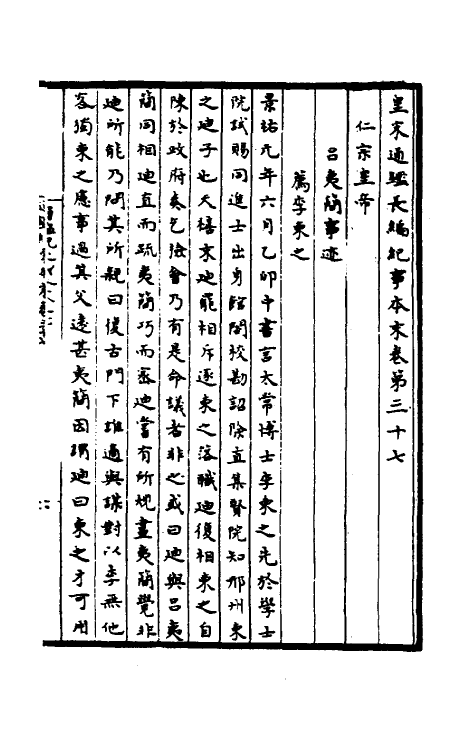 皇宋通鑑長編紀事本末卷第三十七
仁宗皇帝
呂夷簡事迹
薦李東之
景祐元年六月乙卯中書言太常博士李東之先於學士
院試賜同進士出身館閣校勘詔除直集賢院知邢州東
之迪子也天禧末迪罷相斥逐東之落職迪復相東之自
陳於政府奏乞
會乃有是命議者非之或曰迪與呂夷
簡同相迪直而疏夷簡巧而密迪嘗有所規畫夷簡覺非
迪所能乃問其所親曰復古門下誰適與謀對以李無他
客獨東之慮事過其父遠甚夷簡因謂迪曰東之才可用